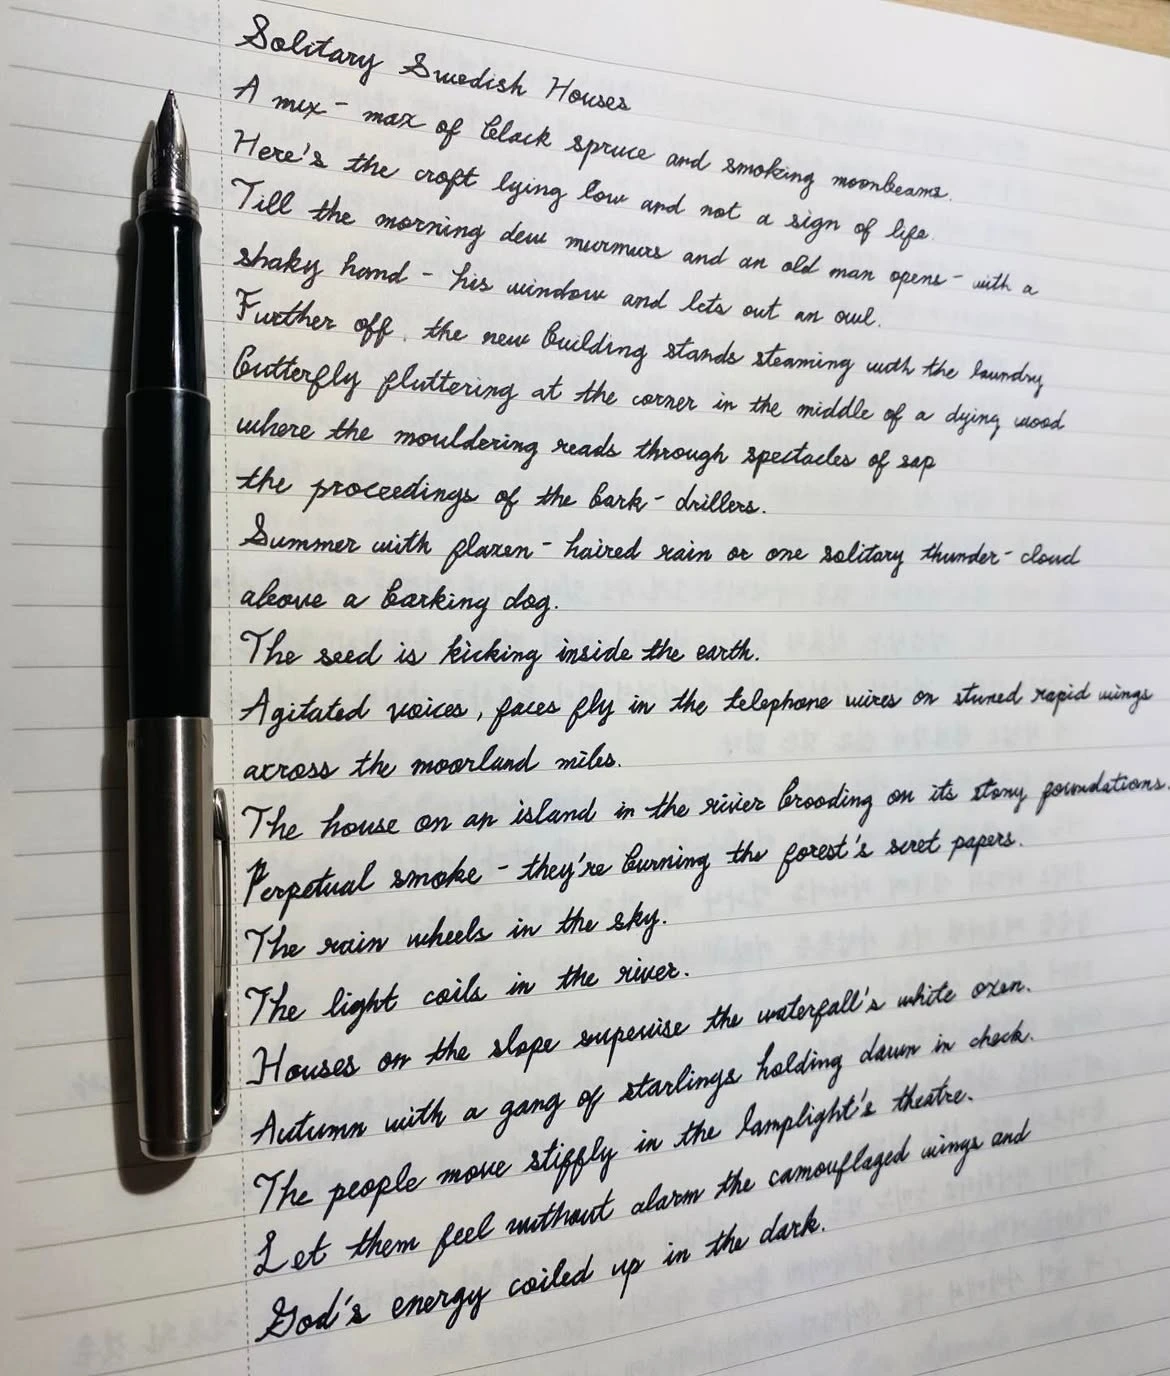 Solitary Swedish Houses
A mix - max of black spruce and smoking moonbeams.
Here's the croft lying low and not a sign of life.
Till the morning dew murmurs and an old man opens - with a
shaky hand - his window and lets out an owl.
Further off, the new building stands steaming with the laundry
butterfly fluttering at the corner in the middle of a dying wood
where the mouldering reads through spectacles of sap
the proceedings of the bark - drillers.
Summer with flaxen - haired rain or one solitary thunder - cloud
above a barking dog.
The seed is kicking inside the earth.
Agitated voices, faces fly in the telephone wires on stuned rapid wings
across the moorland miles.
The house on an island in the river brooding on its stony foundations.
Perpetual smoke - they're burning the forest's seret papers.
The rain wheels in the sky.
The light coils in the river.
Houses on the slope supervise the waterfall's white oxen.
Autumn with a gang of starlings holding dawn in check.
The people move stiffly in the lamplight's theatre.
Let them feel without alarm the camouflaged wings and
God's energy coiled up in the dark.